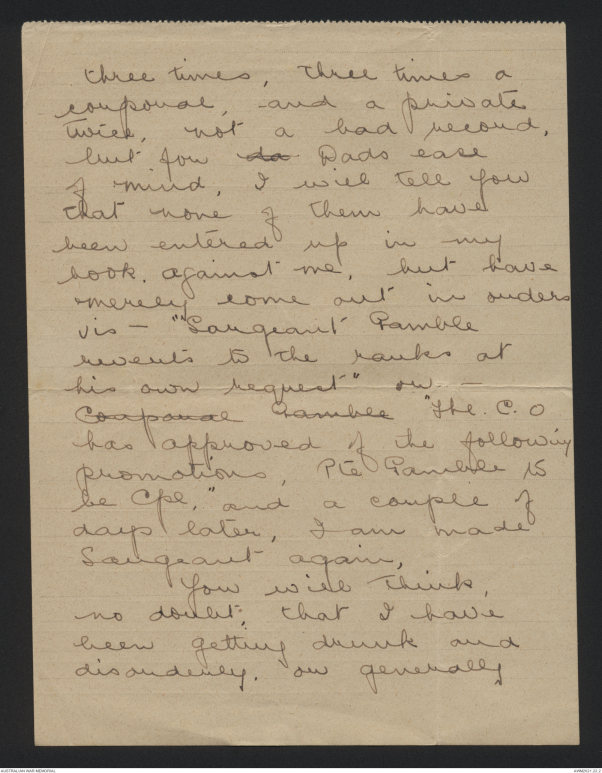 three times, three times a
couporal, and a private
twice, not a bad record,
but for da Dads ease
of mind, I will tell you
that none of them have
been entered up in my
book. against me, but have
merely come out in orders
vis — "Sargeant Gamble
reverts to the ranks at
his own request" or —
Couporal Gamble "The. C. O
has approved of the following
promotions, Pte Gamble to
be Cpl," and a couple of
days later, I am made
Sargeant again,
You will think,
no doubt, that I have
been getting drunk and
disorderly, or generally
AUSTRALIAN WAR MEMORIAL